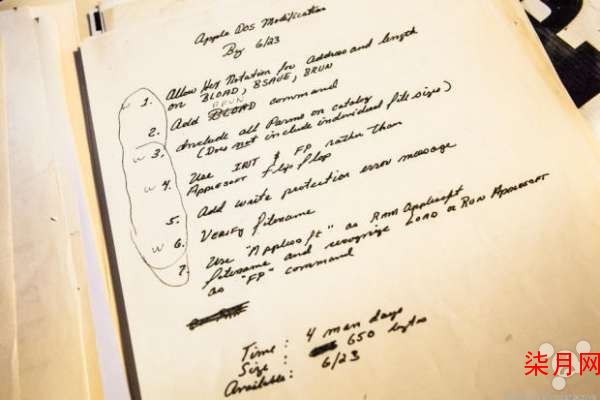 Apple DOS Modification
By 6/23
1. Allow Hex Notation for Address and length
on BLOAD, BSAVE, BRUN
BRUN
2. Add BLOAD command
3. Include all Parms on catalog
(Does not include individual file sizes)
4. Use INT & FP rather than
Applesoft flip flop
5. Add write protection error message
6. VERIFY filename
7. Use "Applesoft" as RAM Applesoft
filename and recognize LOAD or RUN Applesoft
as "FP" command
Time: 4 man days
Size: 650 bytes
Available: 6/23
w
w
w
柒月网